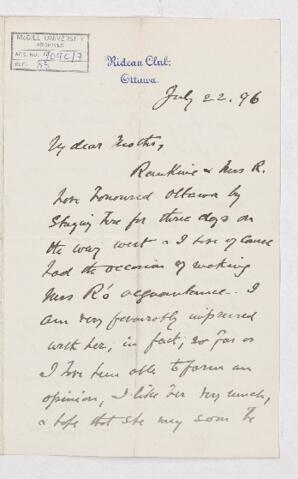 McGILL UNIVERSITY
ARCHIVES
ACC. NO.
REF. 55
Rideau Club,
Ottawa.
July 22. 96
My dear Mother,
Rankine & Mrs R.
have honoured Ottawa by
staying here for three days on
the way west & I have of course
had the occasion of making
Mrs R's acquaintance. I
am very favourably impressed
with her, in fact, so far as
I have been able to form an
opinion, I like her very much,
& hope that she may soon be